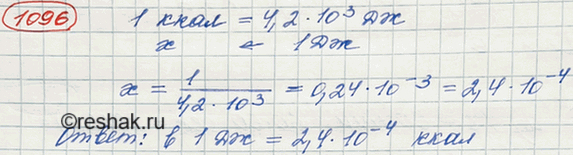 1096
1 ккал = 4,2 · 10³ Дж
x ← 1 Дж
x = 1 / 4,2 · 10³ = 0,24 · 10⁻³ = 2,4 · 10⁻⁴
©reshak.ru
Ответ: в 1 Дж = 2,4 · 10⁻⁴ ккал